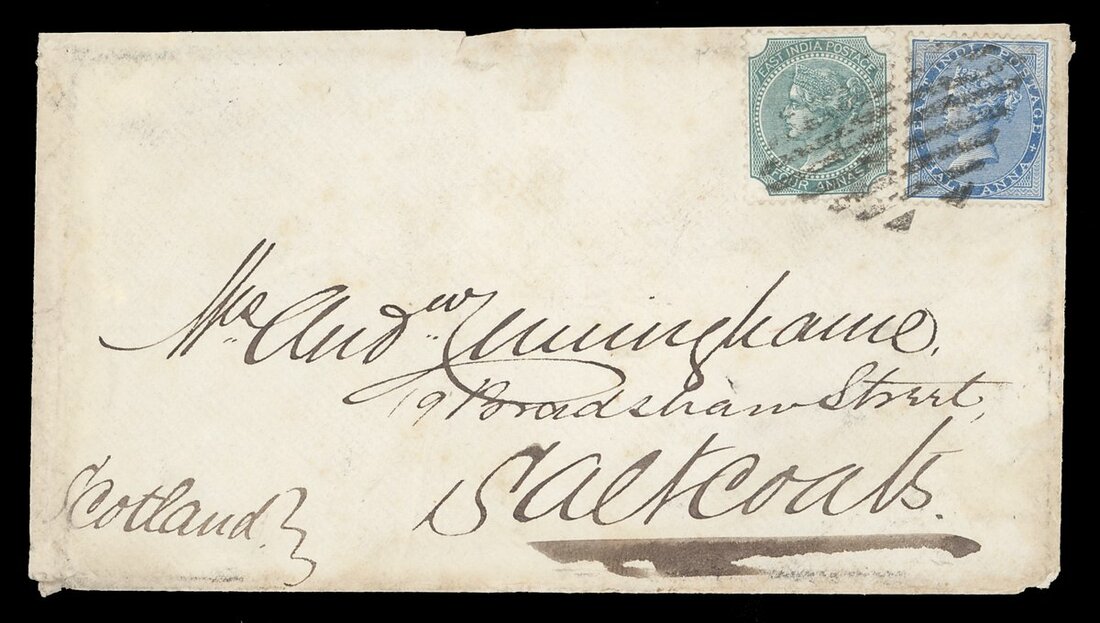 EAST INDIA POSTAGE
FOUR ANNAS
EAST INDIA POSTAGE
HALF ANNA
Mrs Andew Cunninghame,
19 Bradshaw Street,
Saltcoats.
Scotland.